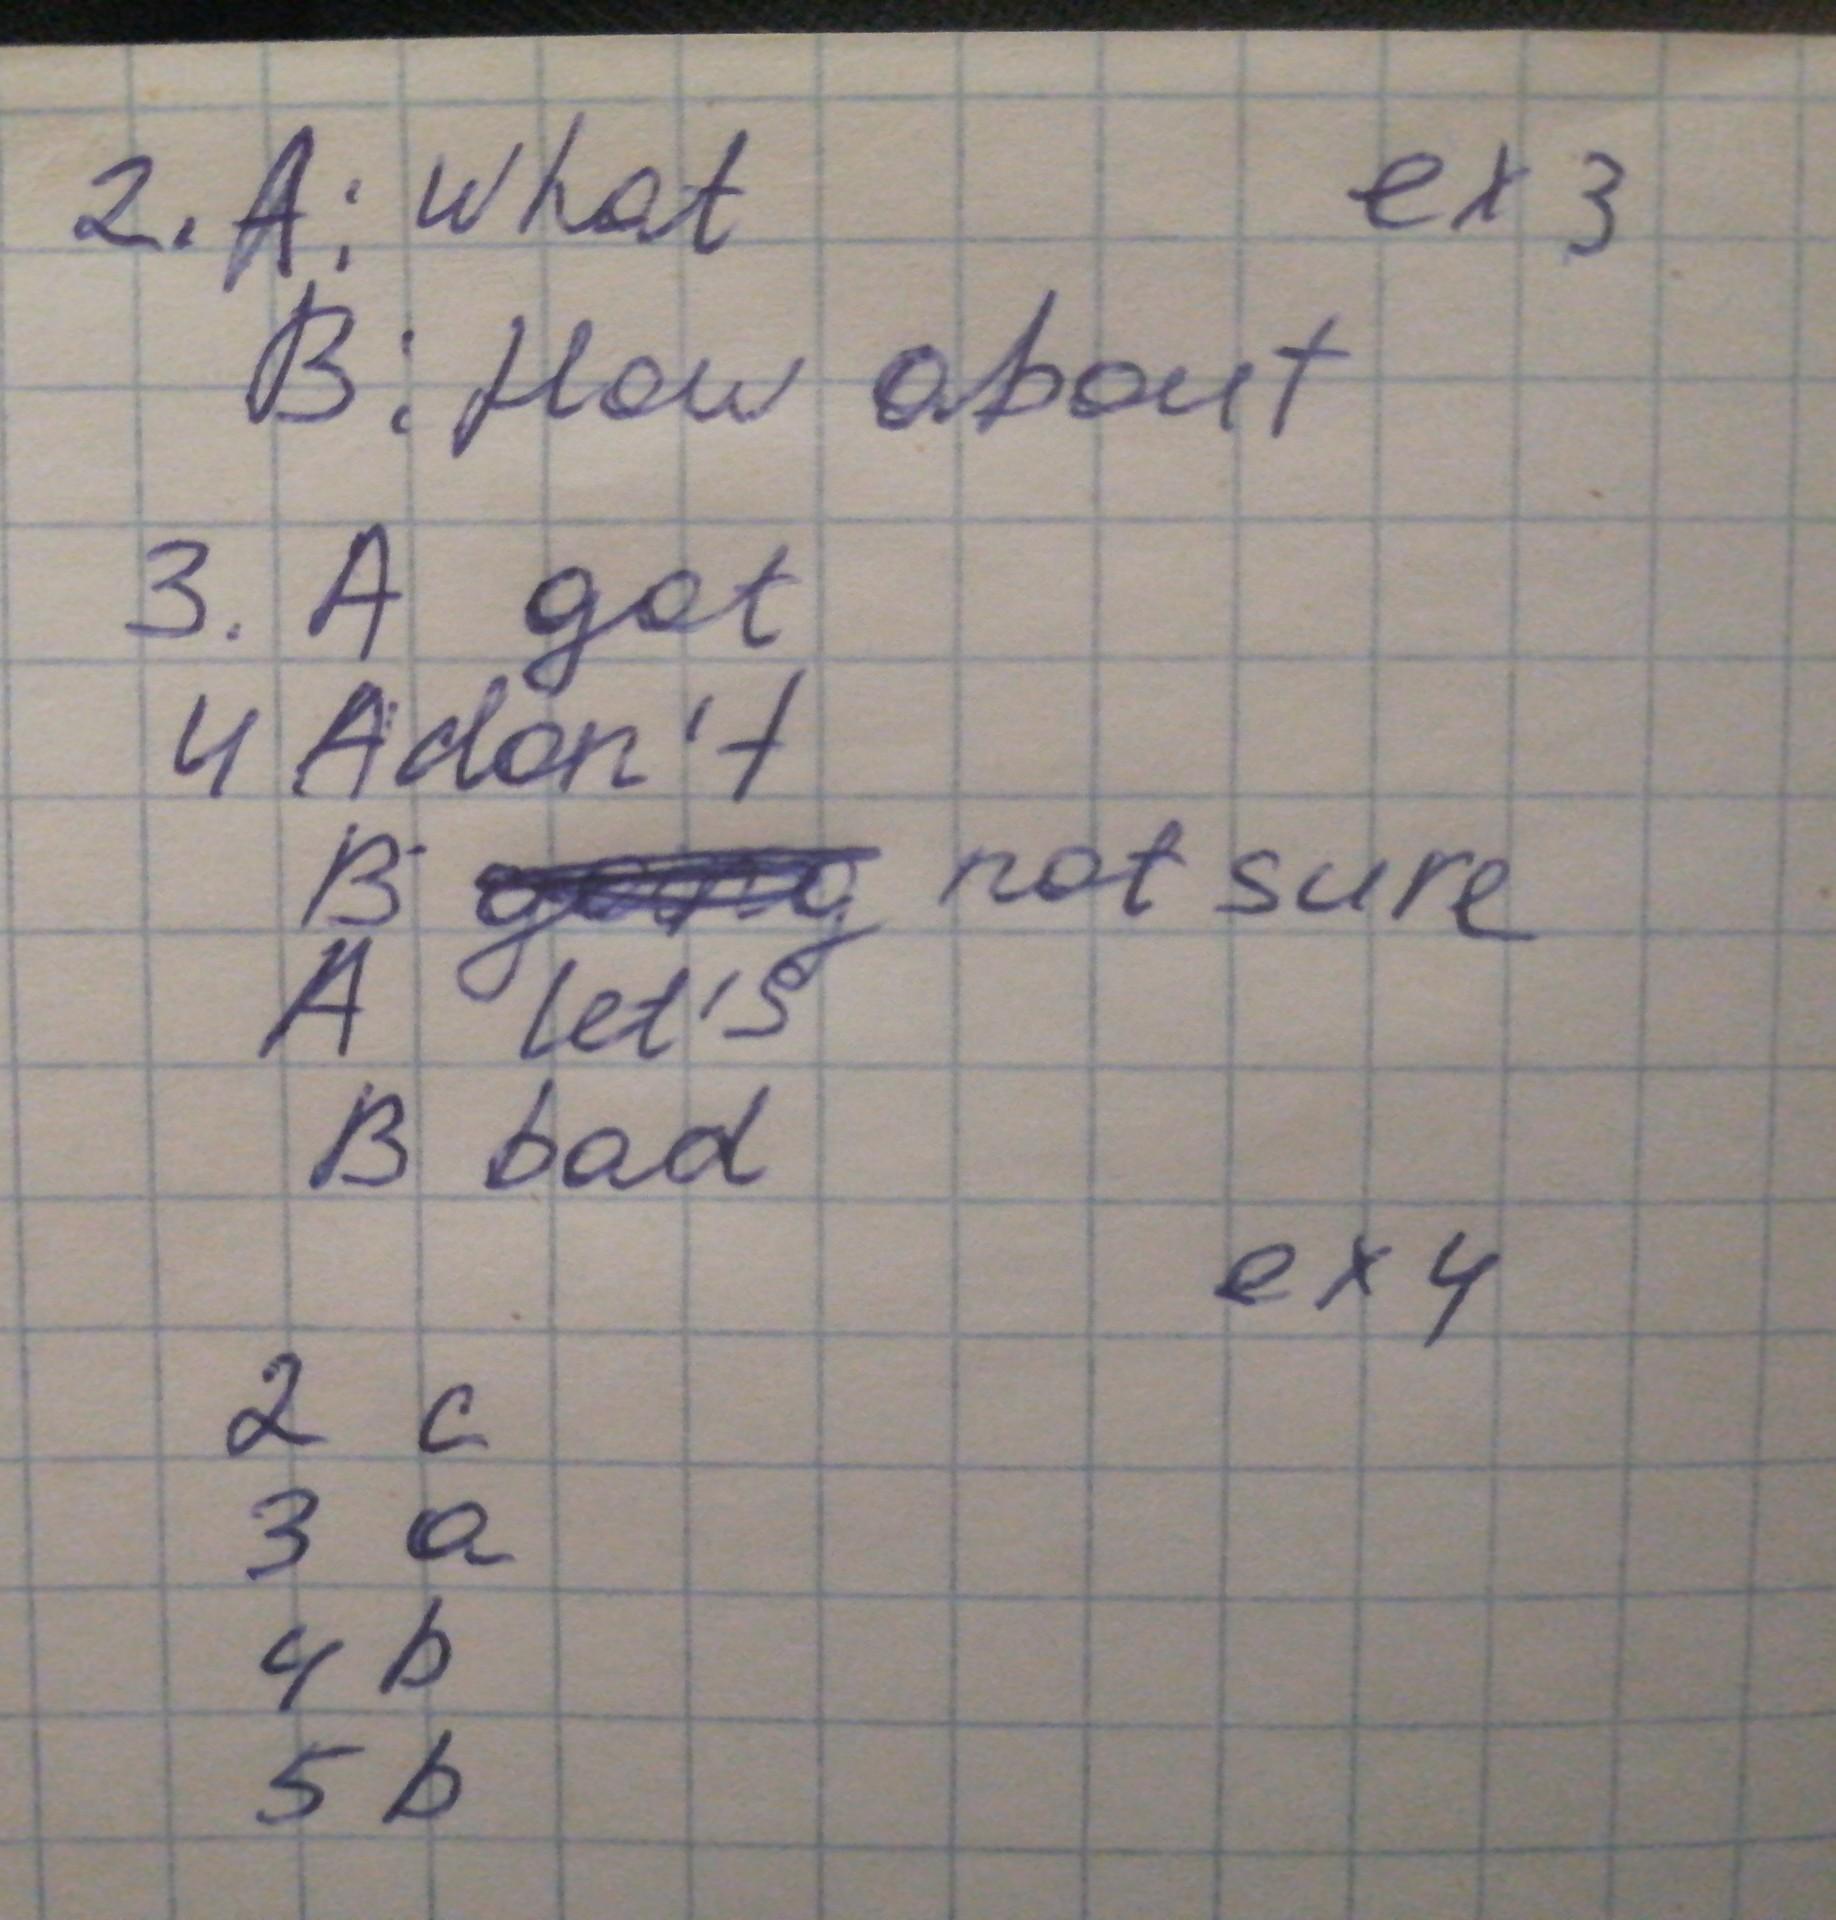 2. A: what ex 3
B: How about
3. A got
4 A don't
B not sure
A let's
B bad
ex 4
2 c
3 a
4 b
5 b